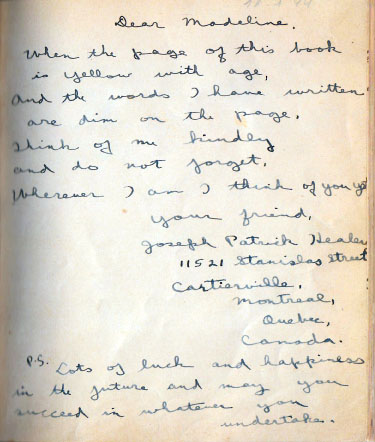 Dear Madeline.
When the page of this book
is yellow with age,
And the words I have written
are dim on the page.
Think of me kindly
and do not forget.
Wherever I am I think of you yet
your friend,
Joseph Patrick Healey
11521 Stanislas Street
Cartierville,
Montreal,
Quebec,
Canada.
P.S. Lots of luck and happiness
in the future and may you
succeed in whatever you
undertake.